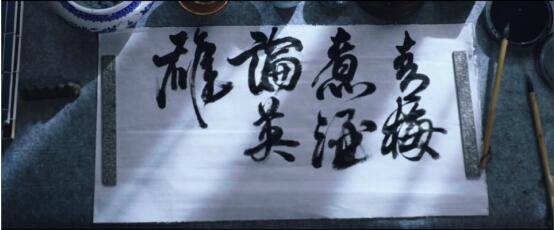 青梅
煮酒
論英
雄